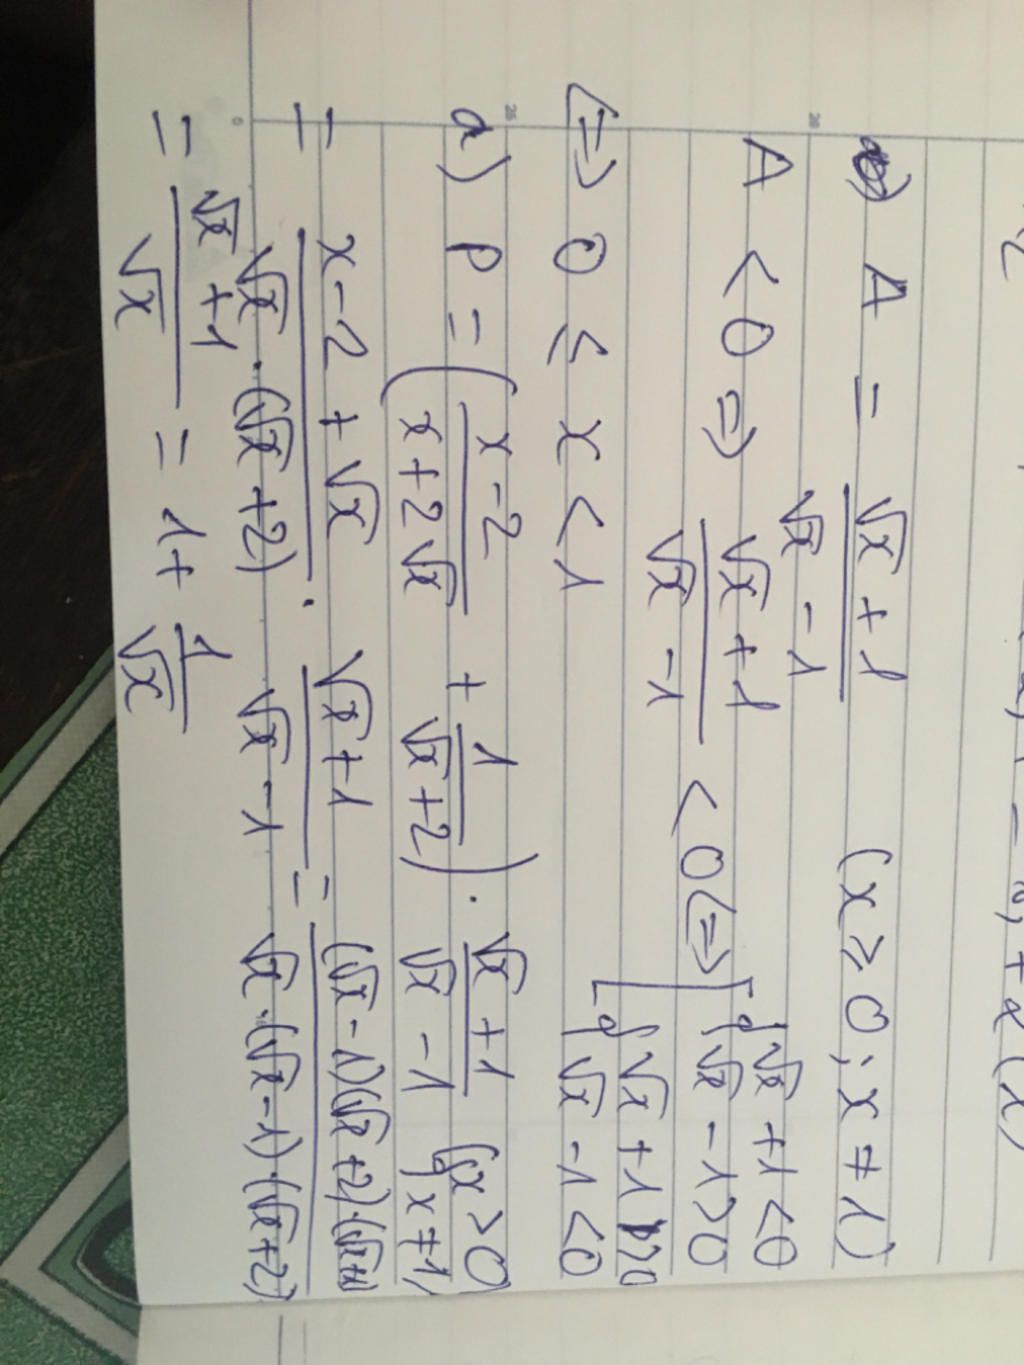 A = (√x + 1)/(√x - 1) (x ≥ 0; x ≠ 1)
A < 0 => (√x + 1)/(√x - 1) < 0 <=> [ { √x + 1 < 0 { √x - 1 > 0
{ √x + 1 > 0 { √x - 1 < 0
<=> 0 ≤ x < 1
a) P = ( (x - 2)/(x + 2√x) + 1/(√x + 2) ) . (√x + 1)/(√x - 1) { x > 0 { x ≠ 1
= (x - 2 + √x)/(√x . (√x + 2)) . (√x + 1)/(√x - 1) = ((√x - 1)(√x + 2).(√x + 1))/(√x . (√x - 1).(√x + 2))
= (√x + 1)/√x = 1 + 1/√x